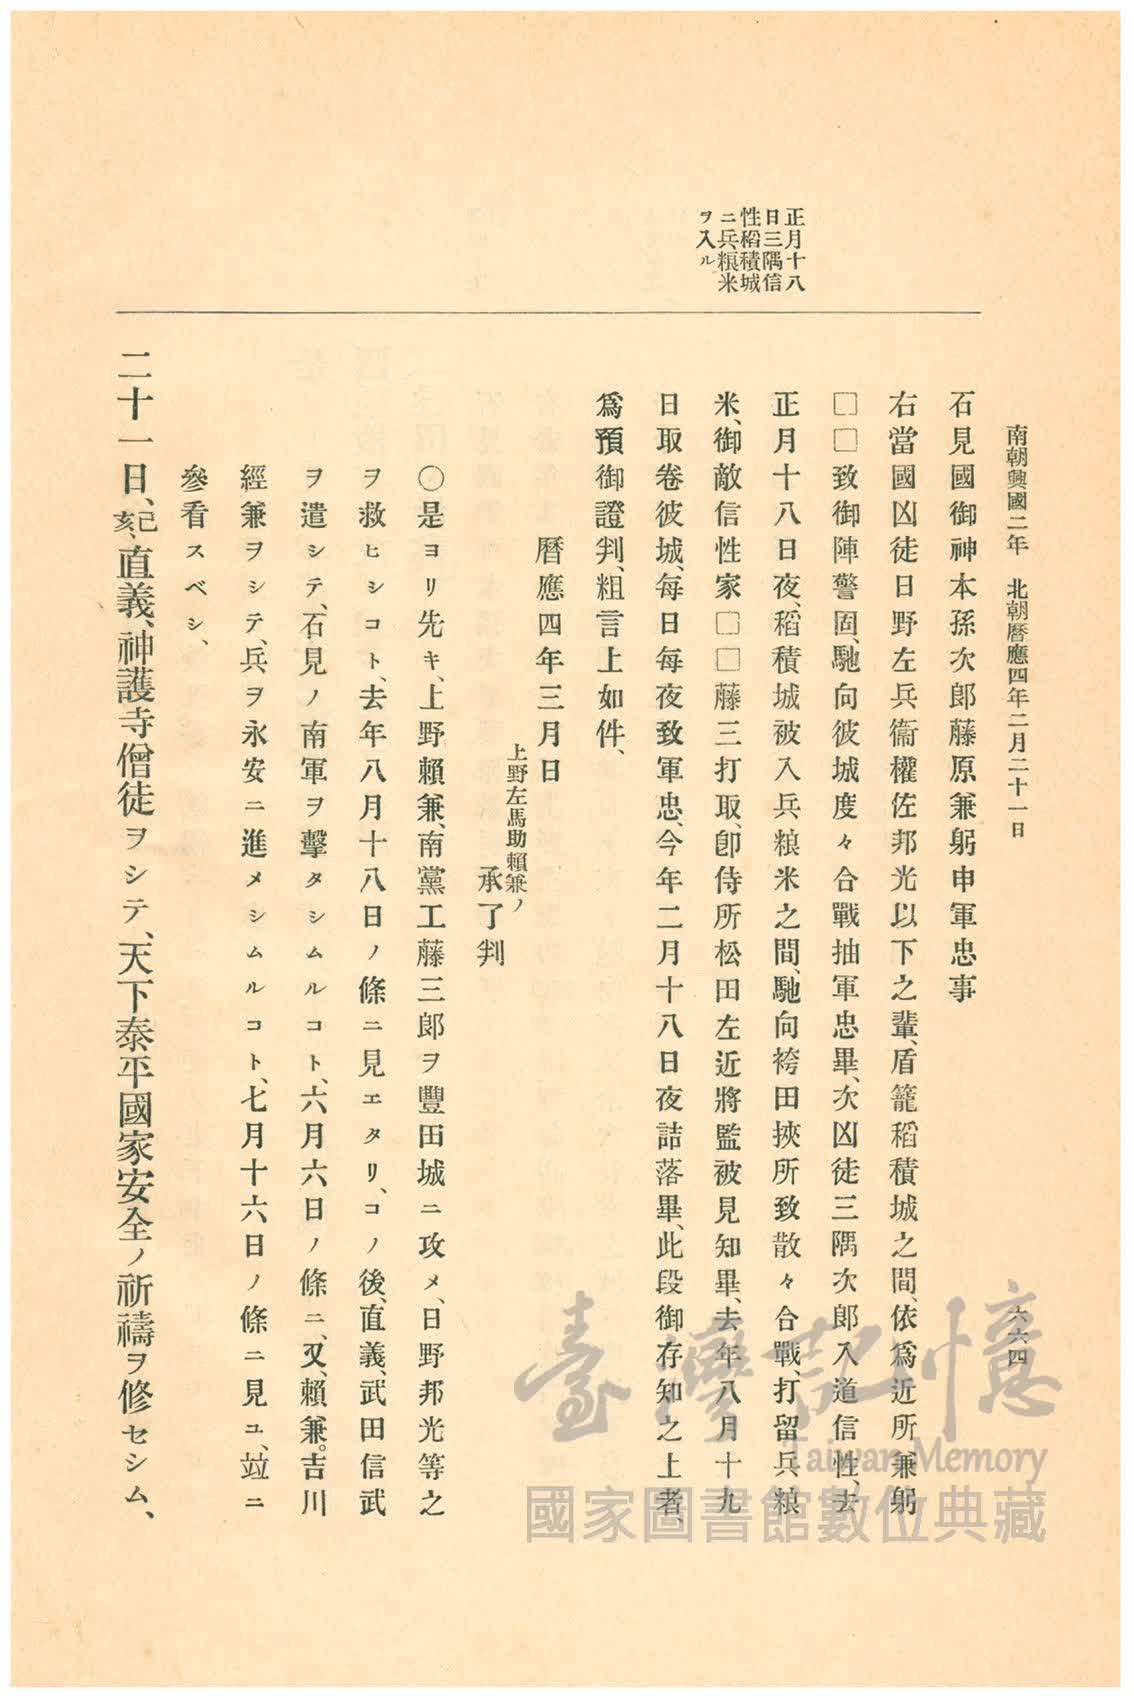 南朝興國二年　北朝曆應四年二月二十一日
六六四
正月十八
日三隅信
性稻積城
ニ兵粮米
ヲ入ル
石見國御神本孫次郎藤原兼躬申軍忠事
右當國凶徒日野左兵衞權佐邦光以下之輩、盾籠稻積城之間、依爲近所兼躬
□□致御陣警固、馳向彼城度々合戰抽軍忠畢、次凶徒三隅次郎入道信性、去
正月十八日夜、稻積城被入兵粮米之間、馳向袴田挾所致散々合戰、打留兵粮
米、御敵信性家□□藤三打取、卽侍所松田左近將監被見知畢、去年八月十九
日取卷彼城、每日每夜致軍忠、今年二月十八日夜詰落畢、此段御存知之上者、
爲預御證判、粗言上如件、
曆應四年三月日
上野左馬助賴兼ノ
承了判
〇是ヨリ先キ、上野賴兼、南黨工藤三郎ヲ豐田城ニ攻メ、日野邦光等之
ヲ救ヒシコト、去年八月十八日ノ條ニ見エタリ、コノ後、直義、武田信武
ヲ遣シテ、石見ノ南軍ヲ擊タシムルコト、六月六日ノ條ニ、又、賴兼。吉川
經兼ヲシテ、兵ヲ永安ニ進メシムルコト、七月十六日ノ條ニ見ユ、竝ニ
參看スベシ、
二十一日、己亥、直義、神護寺僧徒ヲシテ、天下泰平國家安全ノ祈禱ヲ修セシム、
臺灣記憶
Taiwan Memory
國家圖書館數位典藏